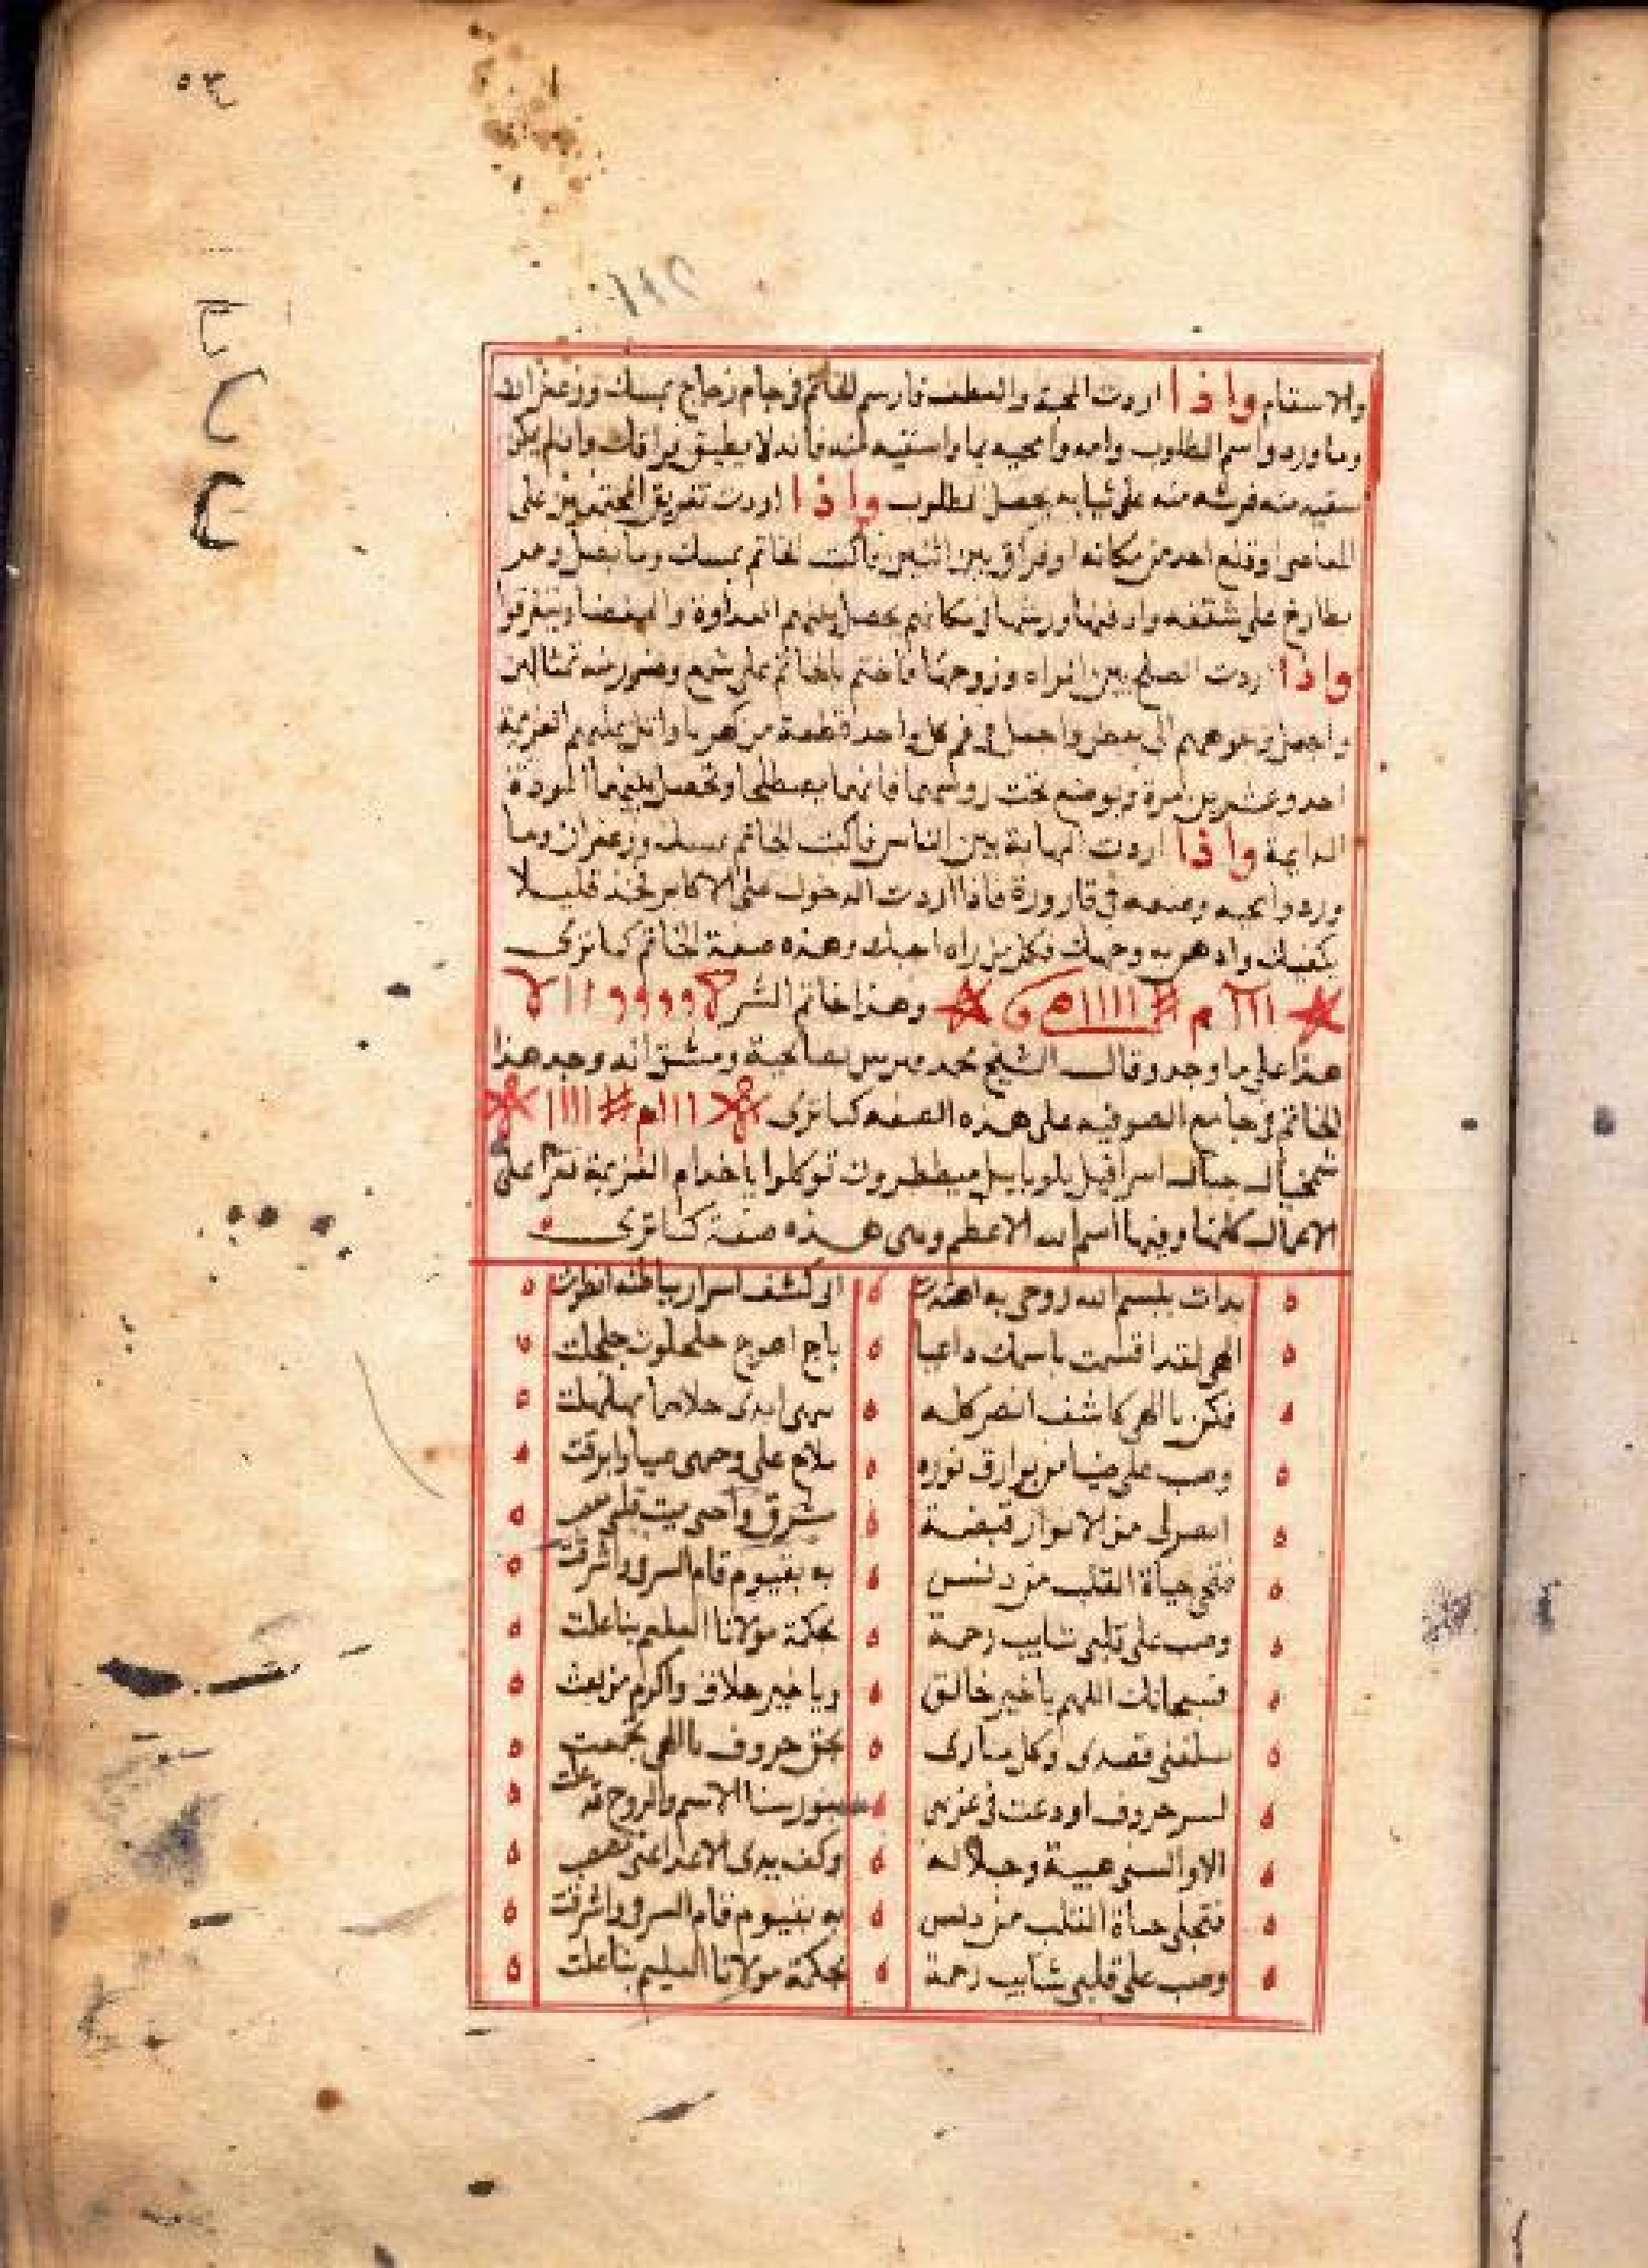 والاسقام واذا اردت المحبة والعطف فارسم الخاتم في جام زجاج بمسك وزعفران
وماورد واسم المطلوب وامه وامحيه بما واسقيه منه فانه لا يطيق فراقك وان لم يكن
سقيه منه فرشه منه على ثيابه يحصل المطلوب واذا اردت تفريق المجتمعين على
المعاصي او قلع احد من مكانه او فراق بين اثنين فاكتب الخاتم بمسك وما بصل وحبر
على شقفه وادفنها ورشها في مكانهم يحصل بينهم العداوة والبغضا ويتفرقوا
واذا اردت الصلح بين امراه وزوجها فاختم بالخاتم على شمع وصور منه تمثالين
واجعل وجوههم الى بعض واجعل في فم كل واحد قطعة من كهربا واتل عليهم العزيمة
احد وعشرين مرة وتوضع تحت روسهما فانهما يصطلحا وتحصل بينهما المودة
الدايمة واذا اردت المهابة بين الناس فاكتب الخاتم بمسك وزعفران وما
ورد وامحيه وضعه في قارورة فاذا اردت الدخول على الاكابر فخذ قليلا
بكفيك وادهن به وجهك فكل من راه احبك وهذه صفة الخاتم كما ترى
ااا م # اااا ه و وهذا خاتم الشر
هذا على ما وجد وقال الشيخ محمد مدرس بصالحية دمشق انه وجد هذا
الخاتم في جامع الصوفيه على هذه الصفه كما ترى ااا م # اااا
اسرافيل ميططرون توكلوا يا خدام العزيمة تقرا على
الاعمال كلها وفيها اسم الله الاعظم وهي هذه صفة كما ترى
بدات ببسم الله روحي به اهتدت ه الى كشف اسرار بباطنه انطوت
الهي لقد اقسمت باسمك داعيا ه باج اهوج جلجلوت جلجلت
فكن يا الهي كاشف الضر كله ه
وصب على ضيا من بوارق نوره ه ملاح على وجهي ضيا وابرقت
لي من الانوار قبضة ه شرق واحي ميت قلبي
حياة القلب من دنس ه به بقيوم قام السر في واشرقت
وصب على قلبي شابيب رحمة ه بحكمة مولانا العليم بنا علت
فسبحانك اللهم يا خير خالق ه ويا خير خلاق واكرم من بعث
قصدي وكل ماربي ه بحق حروف يا الهي تجمعت
لسر حروف اودعت في عزيمتي ه سنا الاسم والروح قد علت
الا والبسني هيبة وجلاله ه وكف يدي الاعدا عني
فتجلى حياة القلب من دنس ه به بقيوم قام السر في واشرقت
وصب على قلبي شابيب رحمة ه بحكمة مولانا العليم بنا علت